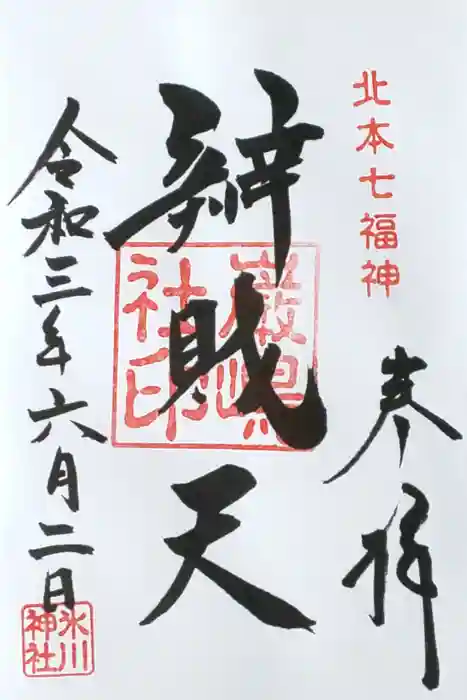 北本七福神
奉拝
辨財天
令和三年六月二日
氷川
神社